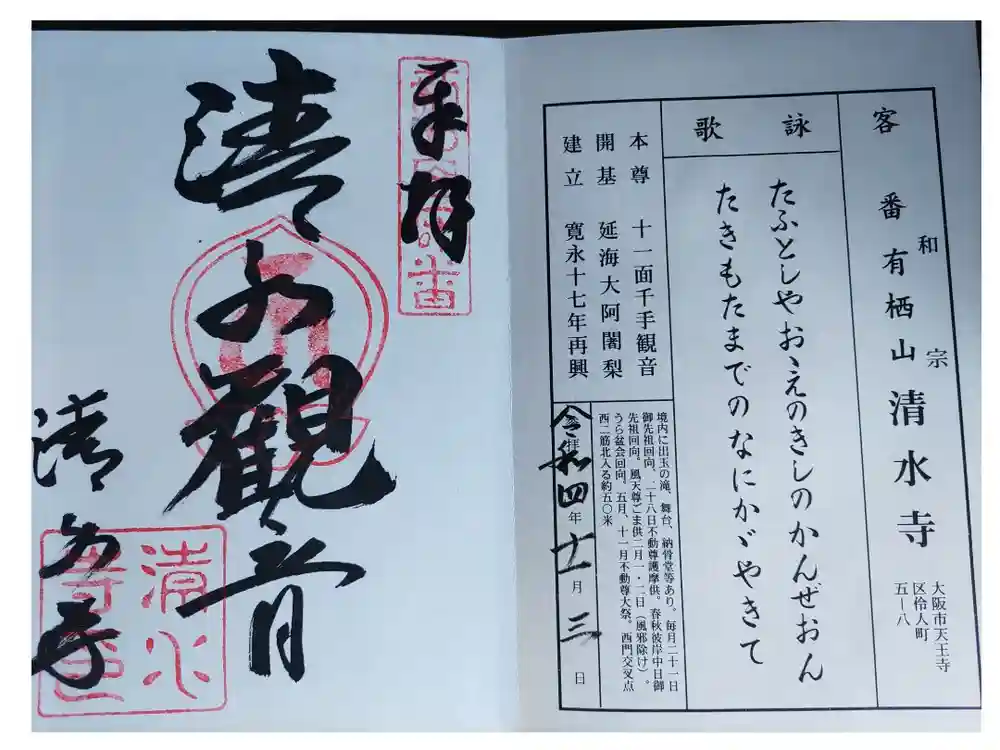 客番 和宗
有栖山 清水寺
大阪市天王寺
区伶人町
五―八
詠歌
たふとしやおゝえのきしのかんぜおん
たきもたまでのなにかゞやきて
本尊 十一面千手観音
開基 延海大阿闍梨
建立 寛永十七年再興
境内に出玉の滝、舞台、納骨堂等あり。毎月二十一日
御先祖回向、二十八日不動尊護摩供。春秋彼岸中日御
先祖回向。風天尊ごま供二月一・二日(風邪除け)。
うら盆会回向。五月、十一月不動尊大祭。西門交叉点
西二筋北入る約五〇米
令和四年十一月三日
奉拝
清水観音
清水寺
清水
寺印